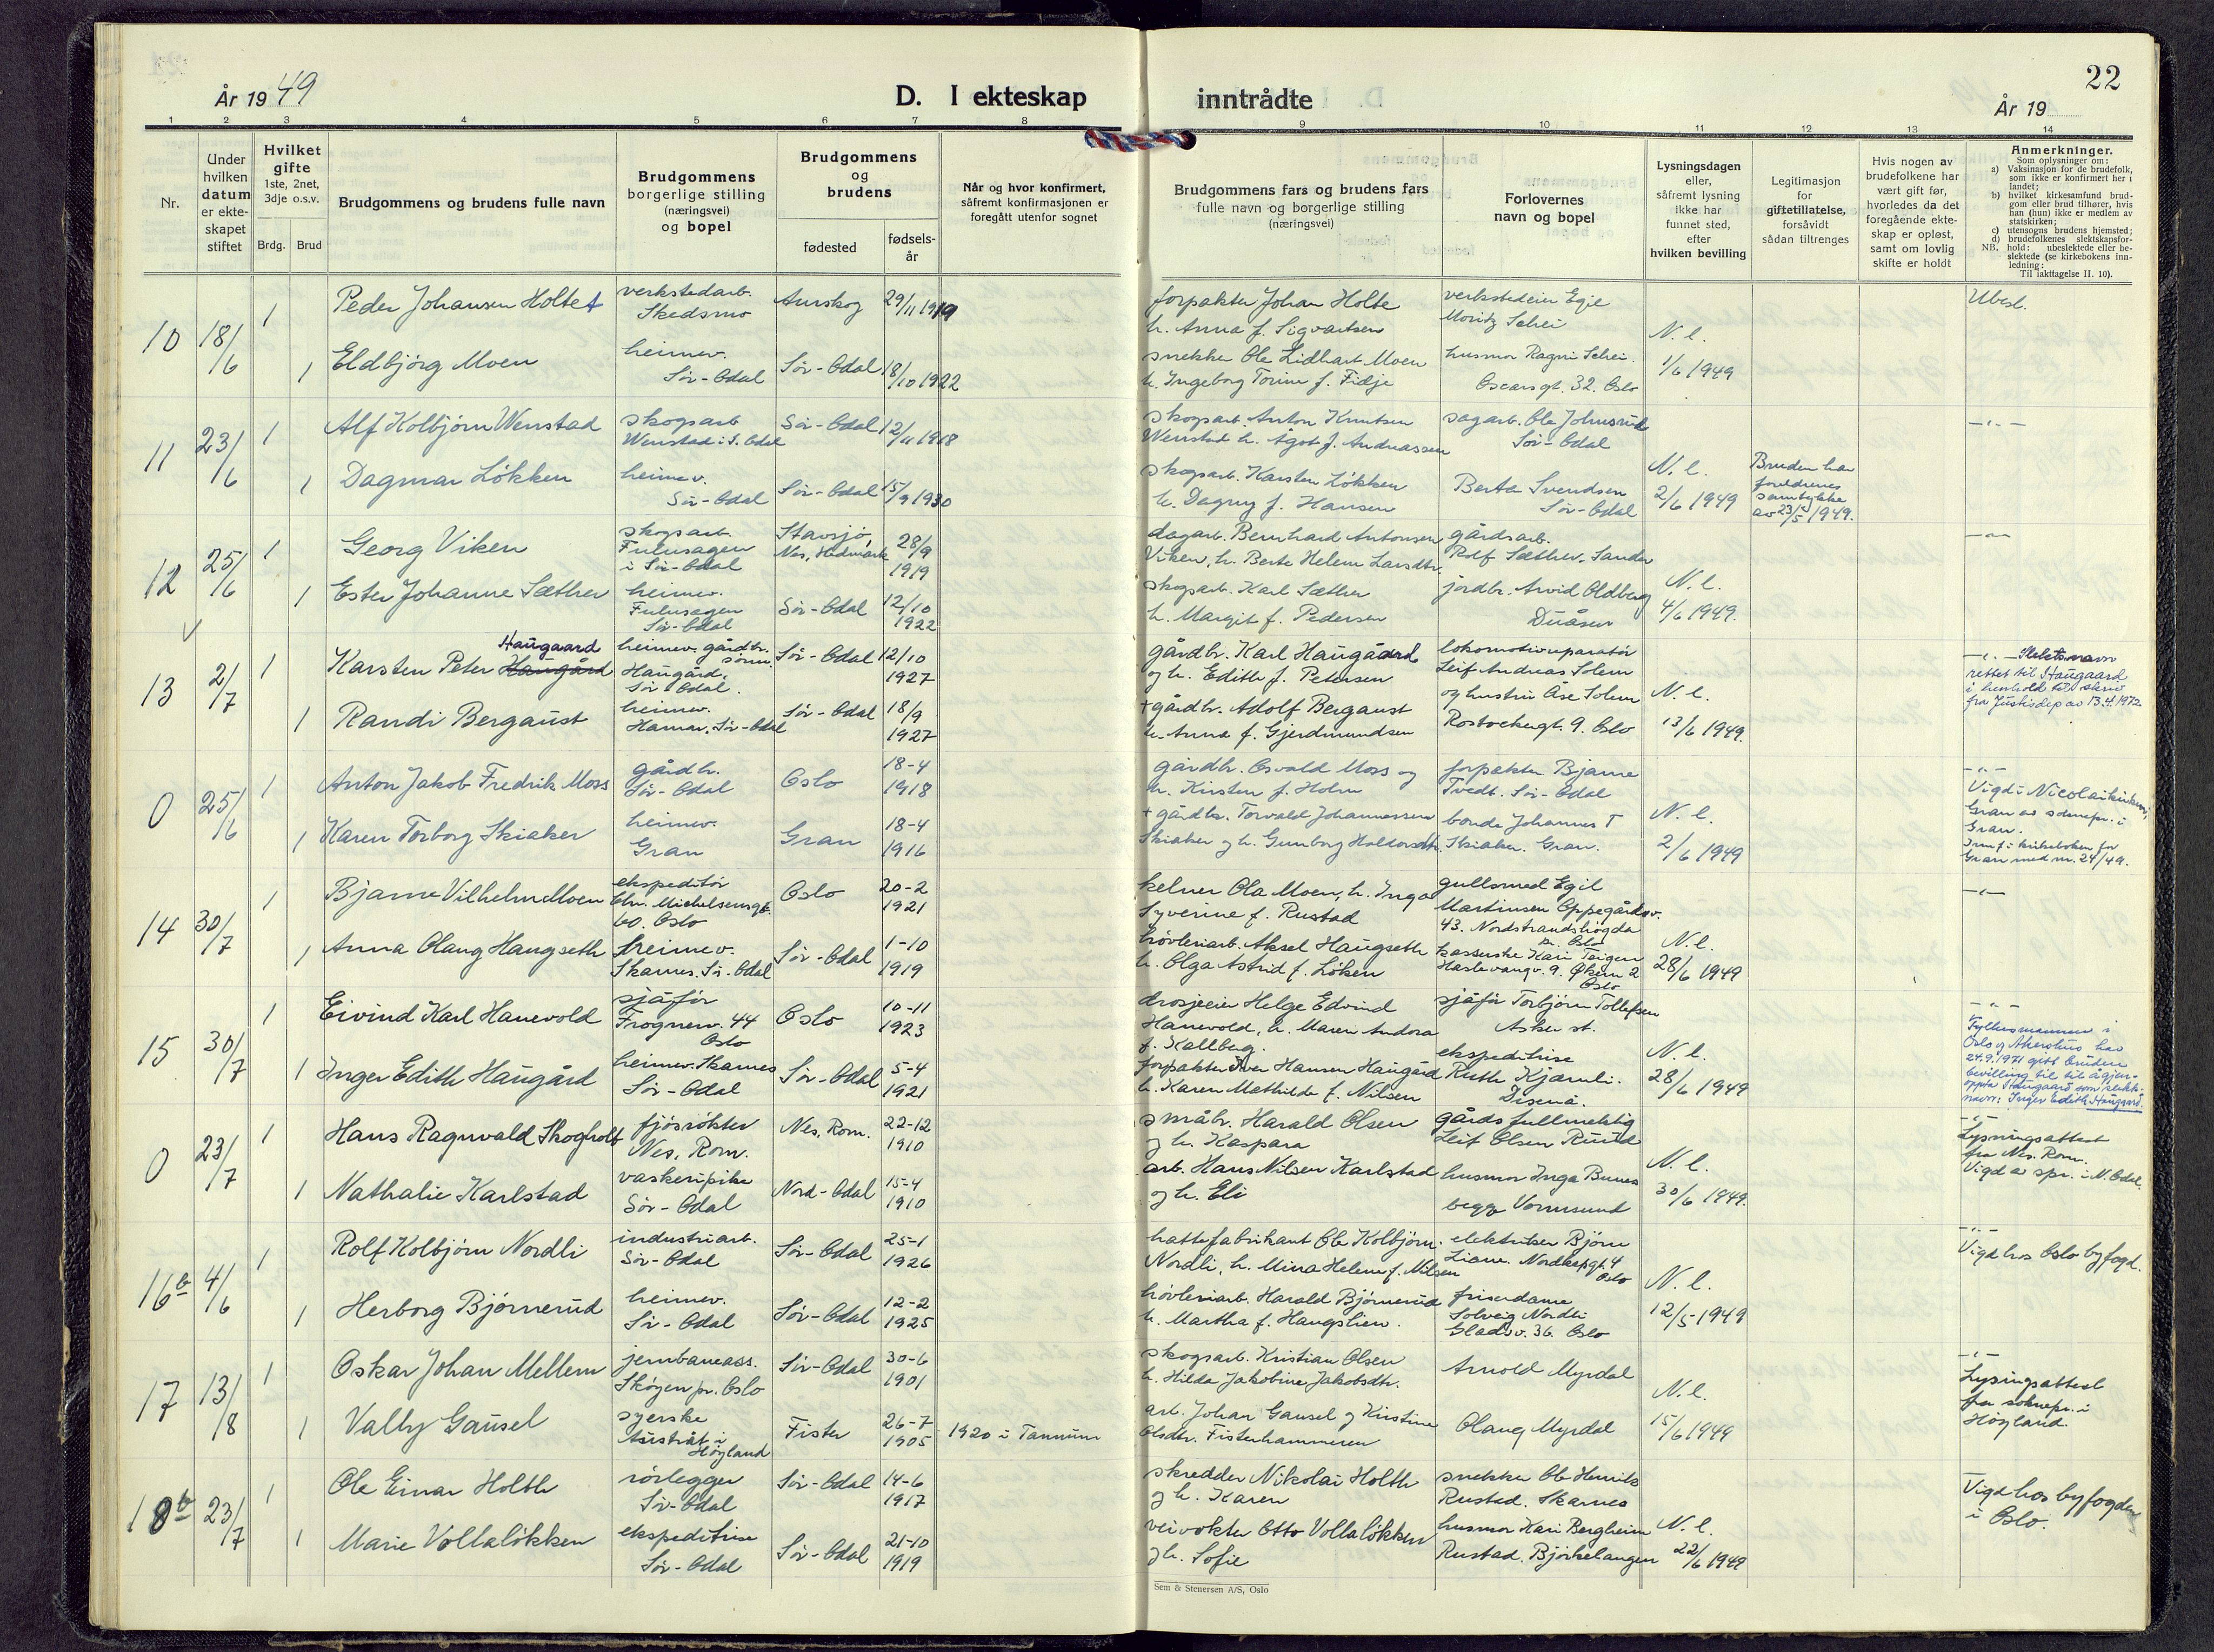 22
År 1949
D. I ekteskap inntrådte
År 19
1 2 3 4 5 6 7 8 9 10 11 12 13 14
Nr.
Under hvilken datum er ekteskapet stiftet
Hvilket gifte
1ste, 2net, 3dje o.s.v.
Brdg. Brud
Brudgommens og brudens fulle navn
Brudgommens borgerlige stilling (næringsvei) og bopel
Brudgommens og brudens
fødested
fødselsår
Når og hvor konfirmert, såfremt konfirmasjonen er foregått utenfor sognet
Brudgommens fars og brudens fars fulle navn og borgerlige stilling (næringsvei)
Forlovernes navn og bopel
Lysningsdagen eller, såfremt lysning ikke har funnet sted, efter hvilken bevilling
Legitimasjon for giftetillatelse, forsåvidt sådan tiltrenges
Hvis nogen av brudefolkene har vært gift før, hvorledes da det foregående ekteskap er opløst, samt om lovlig skifte er holdt
Anmerkninger.
Som oplysninger om:
a) Vaksinasjon for de brudefolk, som ikke er konfirmert her i landet;
b) hvilket kirkesamfund brudgom eller brud tilhører, hvis han (hun) ikke er medlem av statskirken;
c) utensogns brudens hjemsted;
d) brudefolkenes slektskapsforhold: ubeslektede eller beslektede (se kirkebokens innledning:
NB. Til iakttagelse II. 10).
10 18/6 1 Peder Johansen Holte verkstedarb. Skedsmo Aurskog 29/11 1919
forpakter Johan Holte h. Anna f. Sigvartsen
verkstedeier Egil Moritz Schei
Ubesl.
1 Eldbjørg Moen heimev. Sør-Odal Sør-Odal 18/10 1922
snekker Ole Lidhart Moen h. Ingeborg Torine f. Fidje
husmor Ragni Schei. Oscarsgt. 32. Oslo
N. l. 1/6 1949
11 23/6 1 Alf Kolbjørn Wenstad skogsarb. Wenstad i S. Odal Sør-Odal 12/11 1918
skogsarb. Anton Knutsen Wenstad h. Ågot f. Andreassen
sagarb. Ole Johnsrud Sør-Odal
1 Dagmar Løkken heimev. Sør-Odal Sør-Odal 15/9 1930
skogsarb. Karsten Løkken h. Dagny f. Hansen
Berta Svendsen Sør-Odal
N. l. 2/6 1949
Bruden har foreldrenes samtykke av 23/5 1949.
12 25/6 1 Georg Viken skogsarb. Fulusagen i Sør-Odal Stavsjø, Nes, Hedmark 28/9 1919
dagarb. Bernhard Antonsen Viken, h. Berte Helene Larsdtr.
gårdsarb. Rolf Sæther. Sander
1 Ester Johanne Sæther heimev. Fulusagen Sør-Odal Sør-Odal 12/10 1922
skogsarb. Karl Sæther h. Margit f. Pedersen
jordbr. Arvid Oldberg Duåsen
N. l. 4/6 1949.
13 2/7 1 Karsten Peter Haugård Haugaard heimev. gårdbr. sønn. Haugård, Sør Odal. Sør-Odal 12/10 1927
gårdbr. Karl Haugaard og h. Edith f. Petersen
lokomotivreparatør Leif Andreas Solem og hustru Åse Solem Rostockergt. 9. Oslo
Slektsnavn rettet til Haugaard i henhold til skriv fra Justisdep av 13.4.1972.
1 Randi Bergaust heimev. Hamar, Sør-Odal Sør-Odal 18/9 1927
+ gårdbr. Adolf Bergaust h. Anna f. Gjerdmundsen
N. l. 13/6 1949.
0 25/6 1 Anton Jakob Fredrik Moss gårdbr. Sør-Odal Oslo 18-4 1918
gårdbr. Osvald Moss og h. Kirsten f. Holm
forpakter Bjarne Tvedt. Sør-Odal
Vigd i Nicolaikirken, Gran av sokneprest i Gran. Innf. i kirkeboken for Gran med nr. 24/49.
1 Karen Torborg Skiaker heimev. Gran Gran 18-4 1916
+ gårdbr. Torvald Johannessen Skiaker og h. Gunborg Haldorsdtr.
bonde Johannes T Skiaker. Gran.
N. l. 2/6 1949
14 30/7 1 Bjarne Vilhelm Moen ekspeditør Chr. Michelsensgt. 60. Oslo Oslo 20-2 1921
kelner Ola Moen, h. Inga Syverine f. Rustad
gullsmed Egil Martinsen Oppegårdsv. 43. Nordstrandshøgda Oslo
1 Anna Olaug Haugseth heimev. Skarnes. Sør-Odal Sør-Odal 1-10 1919
høvleriarb. Aksel Haugseth h. Olga Astrid f. Løken
kassererske Kari Teigen Haslevangv. 9. Økern 2 Oslo
N. l. 28/6 1949
15 30/7 1 Eivind Karl Hanevold sjåfør Frognerv. 44 Oslo Oslo 10-11 1923
drosjeeier Helge Edvind Hanevold, h. Maren Andora f. Kallberg.
sjåfør Torbjørn Tollefsen Asker st.
Fylkesmannen i Oslo og Akershus har 24.9.1971 gitt bruden bevilling til til å gjenoppta Haugaard som slektsnavn: Inger Edith Haugaard.
1 Inger Edith Haugård heimev. Skarnes Sør-Odal Sør-Odal 5-4 1921
forpakter Iver Hansen Haugård h. Karen Mathilde f. Nilsen
ekspeditrise Ruth Kjærnli. Disenå.
N. l. 28/6 1949
0 23/7 1 Hans Ragnvald Skogholt fjøsrøkter Nes, Rom. Nes, Rom. 22-12 1910
småbr. Harald Olsen og h. Kaspara
gårdsfullmektig Leif Olsen Ruud
Lysningsattest fra Nes. Rom. Vigd av spr. i N. Odal.
1 Nathalie Karlstad vaskeripike Sør-Odal Nord-Odal 15-4 1910
arb. Hans Nilsen Karlstad og h. Eli
husmor Inga Bunes begge Vormsund
N. l. 30/6 1949.
16b 4/6 1 Rolf Kolbjørn Nordli industriarb. Sør-Odal Sør-Odal 25-1 1926
hattefabrikant Ole Kolbjørn. Nordli, h. Mina Helene f. Nilsen
elektriker Bjørn Liane. Nordkapgt. 4 Oslo
Vigd hos Oslo byfogd.
1 Herborg Bjørnerud heimev. Sør-Odal Sør-Odal 12-2 1925
høvleriarb. Harald Bjørnerud h. Martha f. Haugslien.
friserdame Solveig Nordli Gladsv. 36. Oslo
N. l. 12/5-1949
17 13/8 1 Oskar Johan Mellem jernbaneass. Skøyen pr. Oslo Sør-Odal 30-6 1901
skogsarb. Kristian Olsen h. Hilda Jakobine Jakobsdtr.
Arnold Myrdal
Lysingsattest fra soknepr. i Høyland.
1 Vally Gausel syerske Austråt i Høyland Fister 26-7 1905 1920 i Tanum
arb. Johan Gausel og Kirstine Olsdtr. Fisterhammeren
Olaug Myrdal
N. l. 15/6 1949
18b 23/7 1 Ole Einar Holth rørlegger Sør-Odal Sør-Odal 14-6 1917
skredder Nikolai Holth og h. Karen
snekker Ole Henriks Rustad. Skarnes
Vigd hos byfogden i Oslo.
1 Marie Vollaløkken ekspeditrise Sør-Odal Sør-Odal 21-10 1919
veivokter Otto Vollaløkken og h. Sofie
husmor Kari Bergheim Rustad. Bjørkelangen
N. l. 22/6 1949
Sem & Stenersen A/S, Oslo